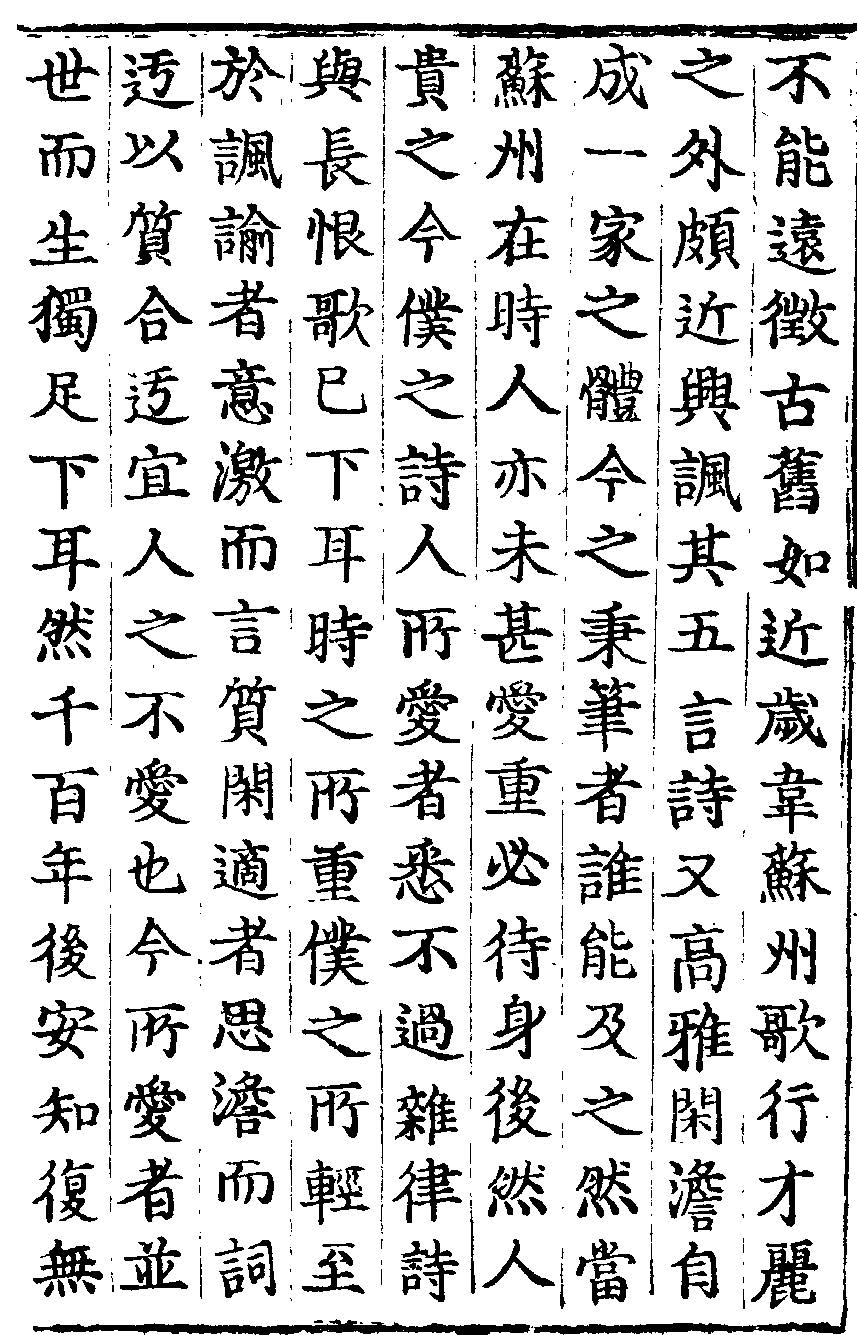 不能遠徵古舊如近歲韋蘇州歌行才麗
之外頗近興諷其五言詩又高雅閑澹自
成一家之體今之秉筆者誰能及之然當
蘇州在時人亦未甚愛重必待身後然人
貴之今僕之詩人所愛者悉不過雜律詩
與長恨歌已下耳時之所重僕之所輕至
於諷諭者意激而言質閑適者思澹而詞
迃以質合迃宜人之不愛也今所愛者並
世而生獨足下耳然千百年後安知復無